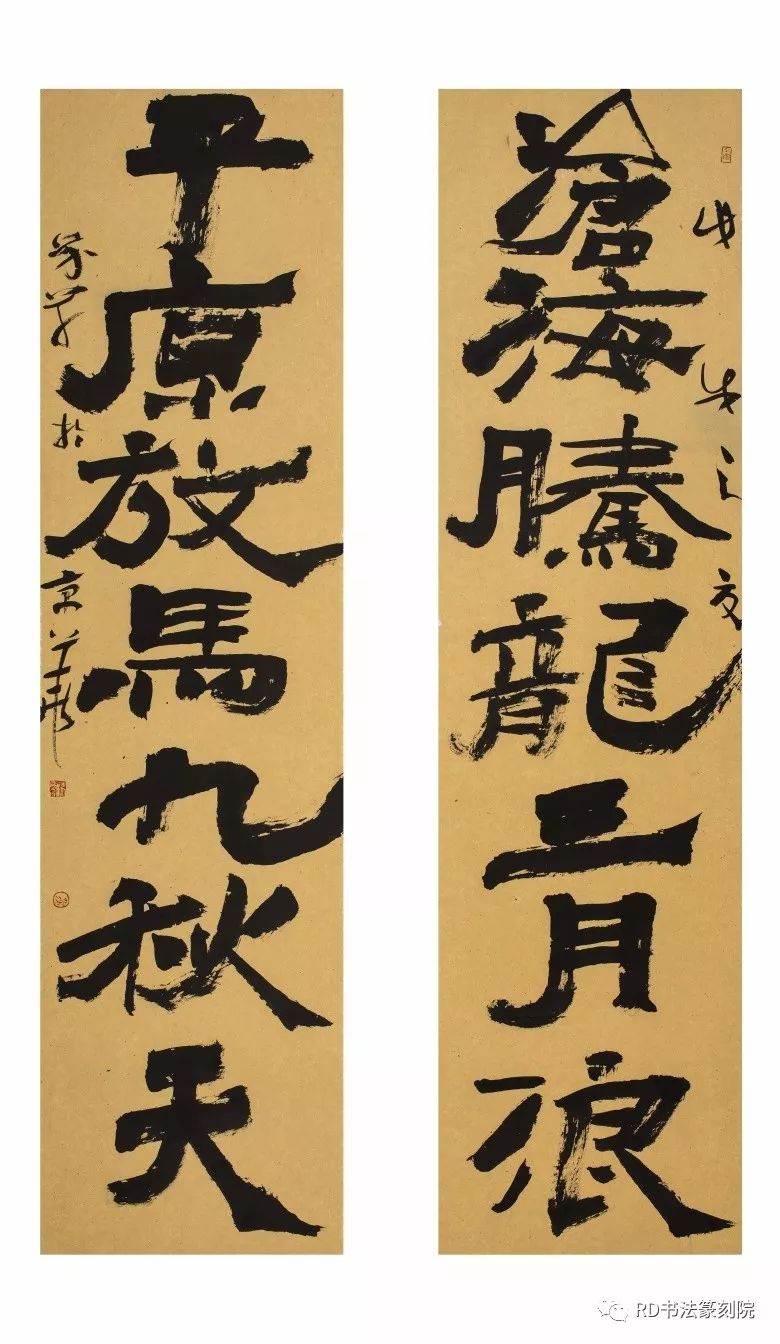 滄海騰龍三月浪
平原放馬九秋天
於京華
RD书法篆刻院